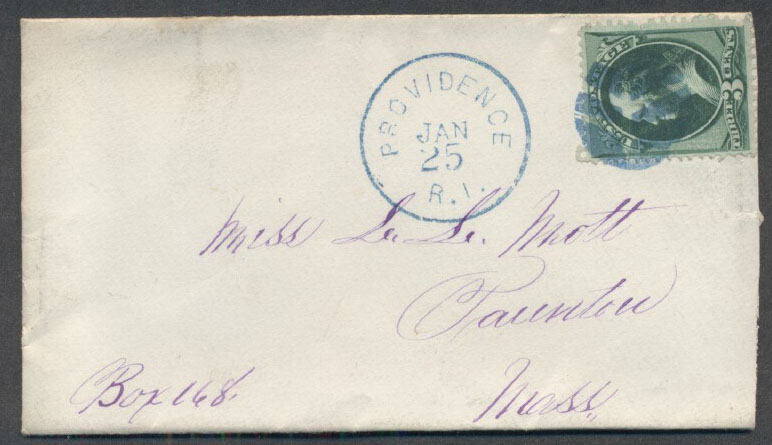 PROVIDENCE
JAN
25
R.I.
U.S. POSTAGE
THREE 3 CENTS
Miss L. L. Mott
Taunton
Mass.
Box 168.